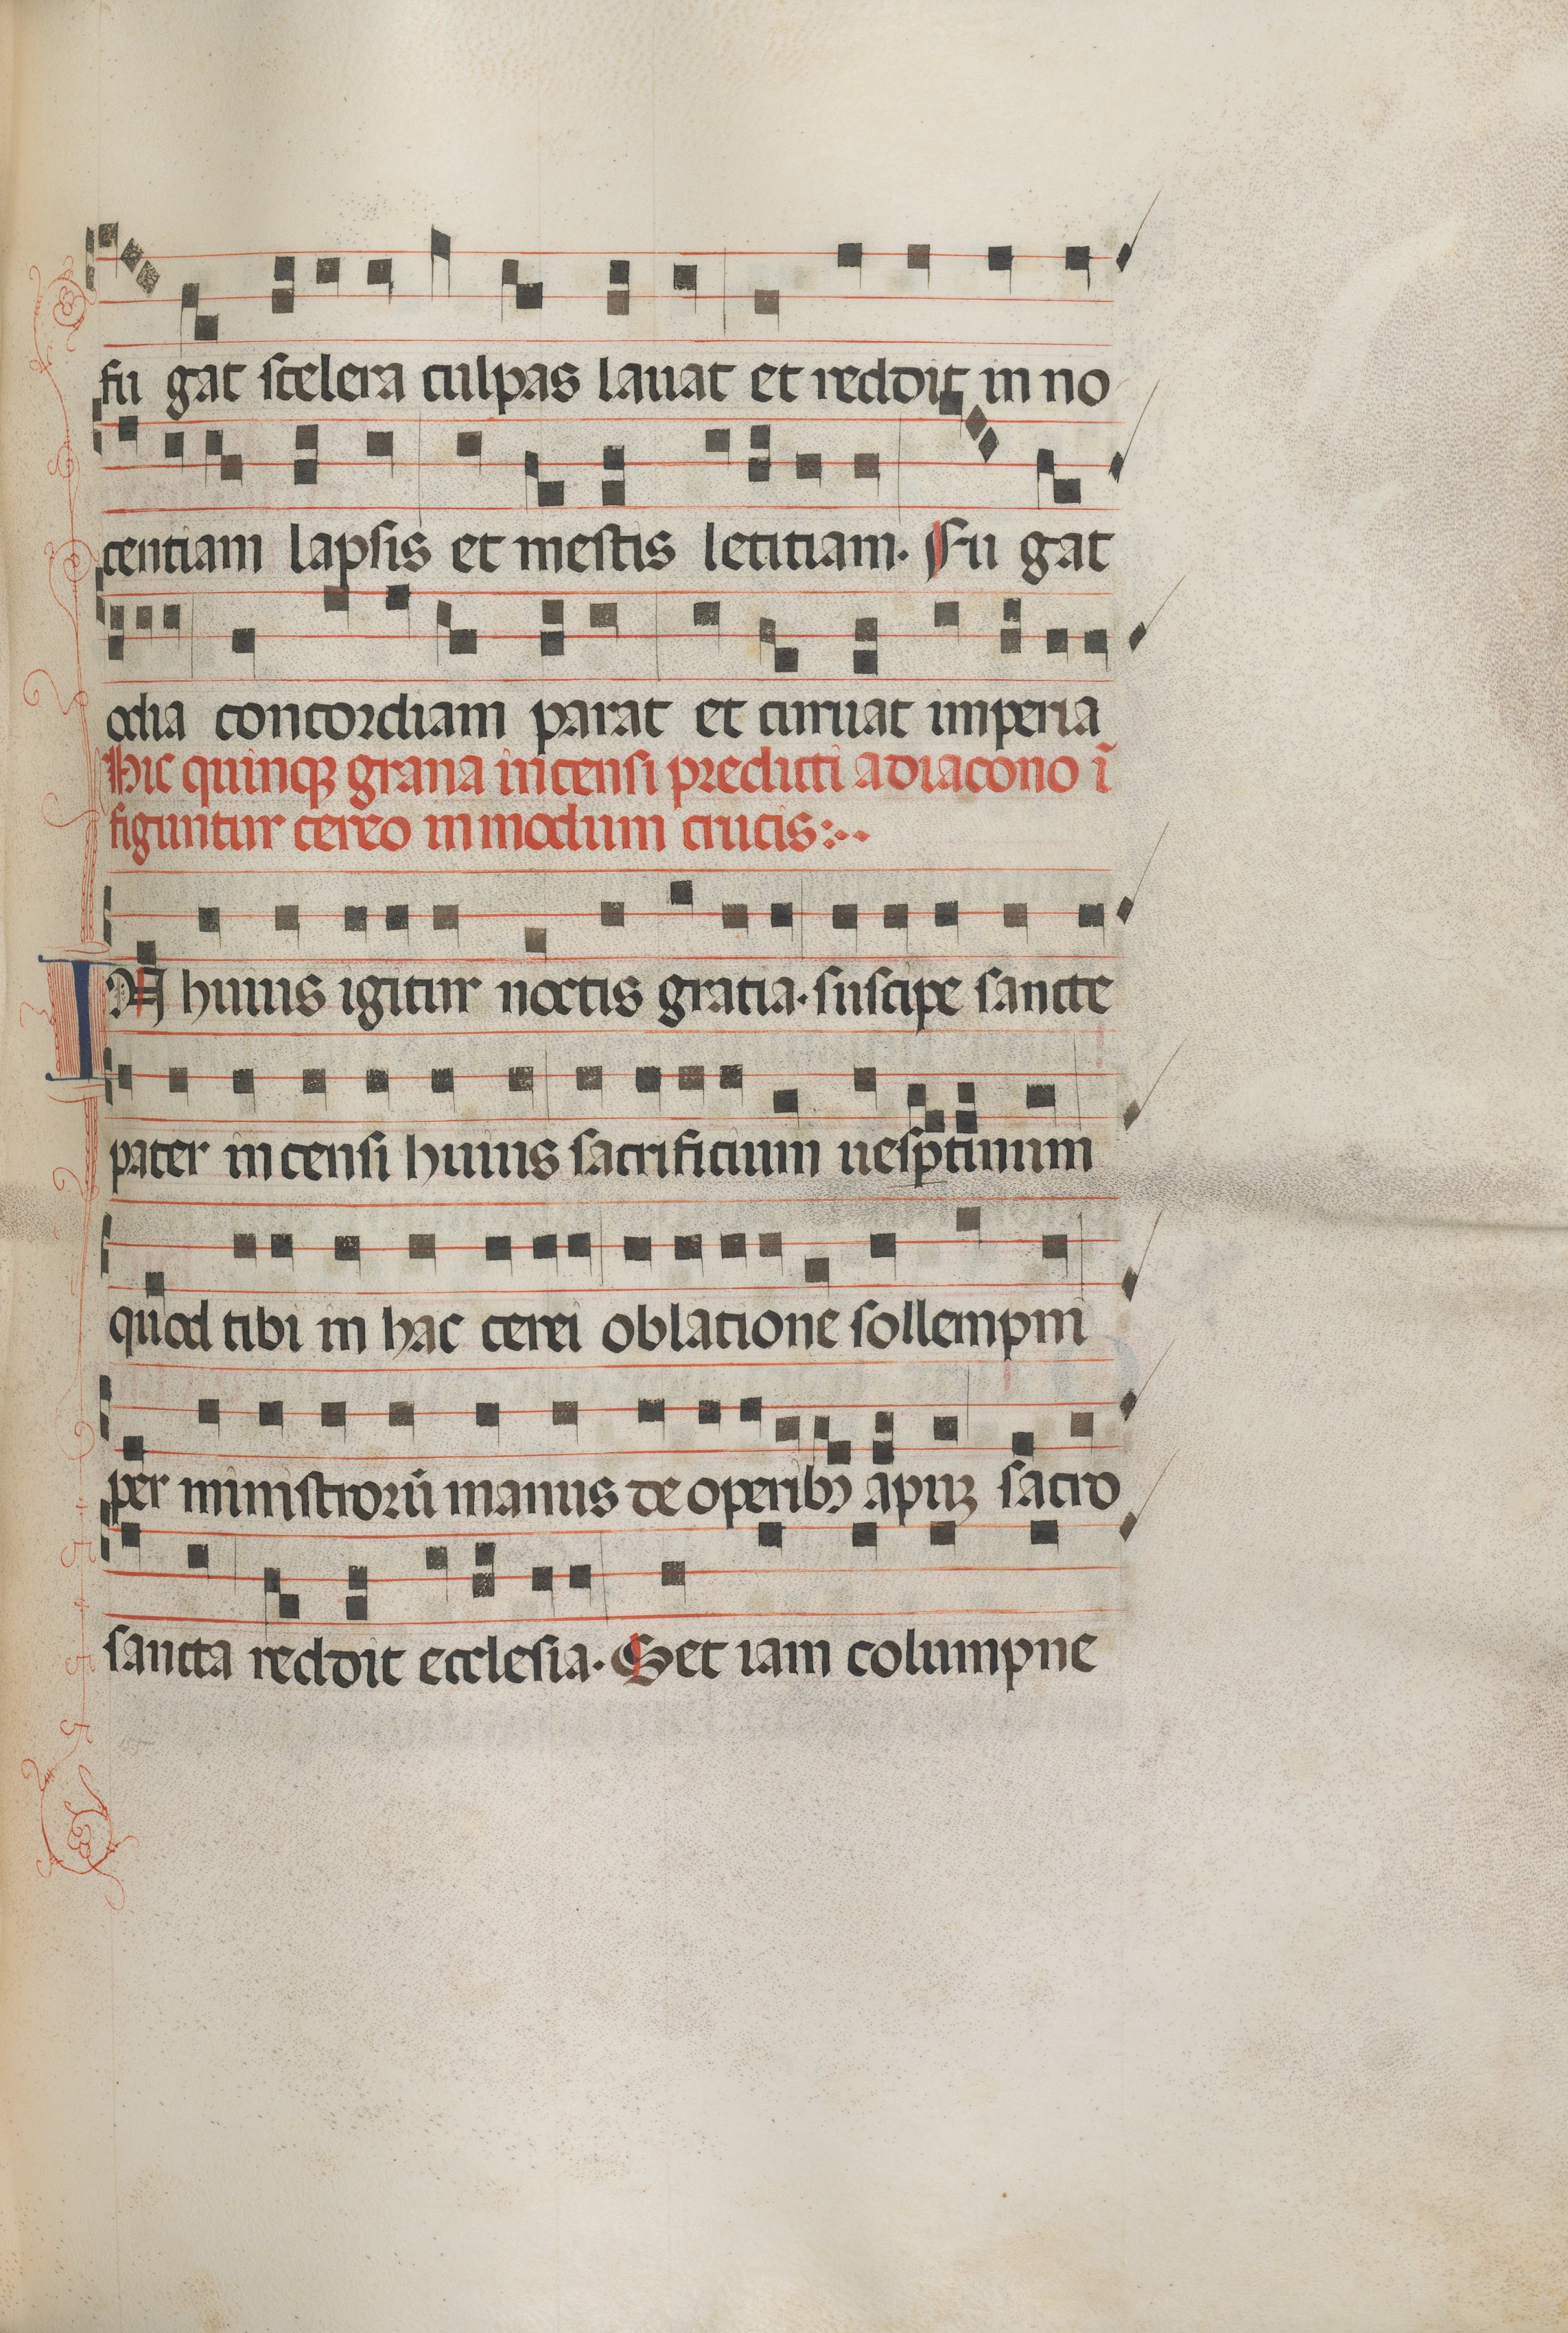 fu gat scelera culpas lauat et reddit in no
centiam lapsis et mestis letitiam. Fu gat
odia concordiam parat et curuat imperia
Hic quinqꝫ grana incensi predicti a diacono ī
figuntur cereo in modum crucis:··
IN huius igitur noctis gratia. suscipe sancte
pater incensi huius sacrificium uesꝑtinum
quod tibi in hac cerei oblatione sollempni
per ministrorū manus de operibꝫ apuꝫ sacro
sancta reddit ecclesia. Set iam columpne